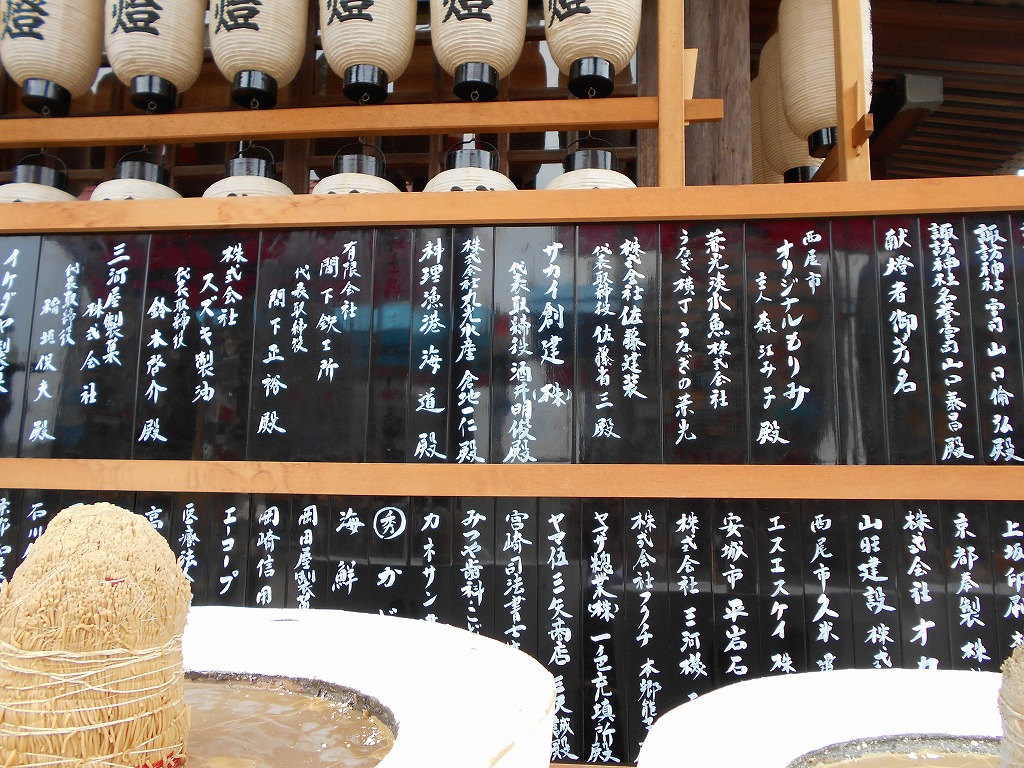 燈
燈
燈
燈
燈
燈
諏訪神社 宮司 山口倫弘殿
諏訪神社名誉宮司 山口泰昌殿
献燈者御芳名
西尾市
オリジナルもりみ
主人 森江み子殿
兼光淡水魚株式会社
うなぎ横丁 うなぎの兼光
株式会社佐藤建装
代表取締役 佐藤省三殿
サカイ創建(株)
代表取締役 酒井明俊殿
株式会社丸光水産 倉地一仁殿
料理漁港 海道殿
有限会社
間下鉄工所
代表取締役
間下正裕殿
株式会社
スズキ製油
代表取締役
鈴木啓介殿
三河屋製菓
株式会社
代表取締役
稲垣保夫殿
イケダヤ製菓
上坂印刷
京都奉製 株
株式会社 オカ
山旺建設 株式
西尾市 久米
エスエスケイ 株
安城市 平岩石
株式会社 三河機
株式会社フタチ 本郷能
ヤマサ總業(株) 一色充填所殿
ヤマ伍 三矢商店 三矢誠殿
宮崎司法書士
みつや歯科こじ
カネサン
秀 かど
海鮮
岡田屋製菓
岡崎信用
エコープ
医療法
高
石川